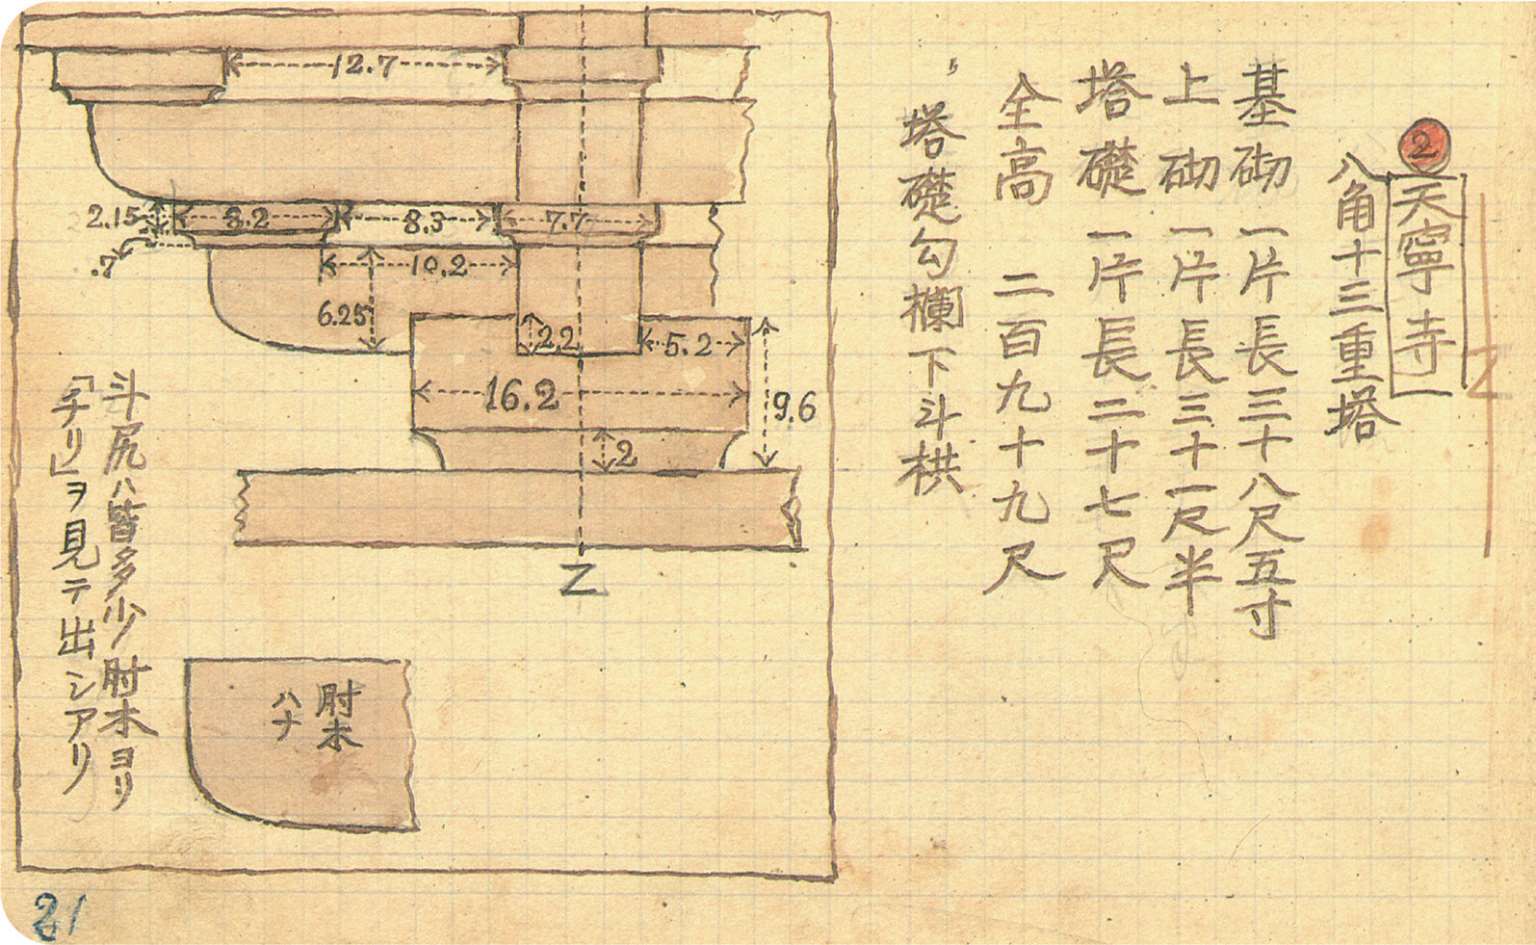 2
天寧寺
八角十三重塔
基砌 一片長三十八尺五寸
上砌 一片長三十一尺半
塔礎 一片長二十七尺
全高 二百九十九尺
塔礎勾欄下斗栱
12.7
2.15
8.2
8.3
7.7
.7
10.2
6.25
2.2
5.2
16.2
9.6
2
Z
Z
斗尻ハ皆多少ノ肘木ヨリ
「チリ」ヲ見テ出シアリ
肘木
ハナ
21